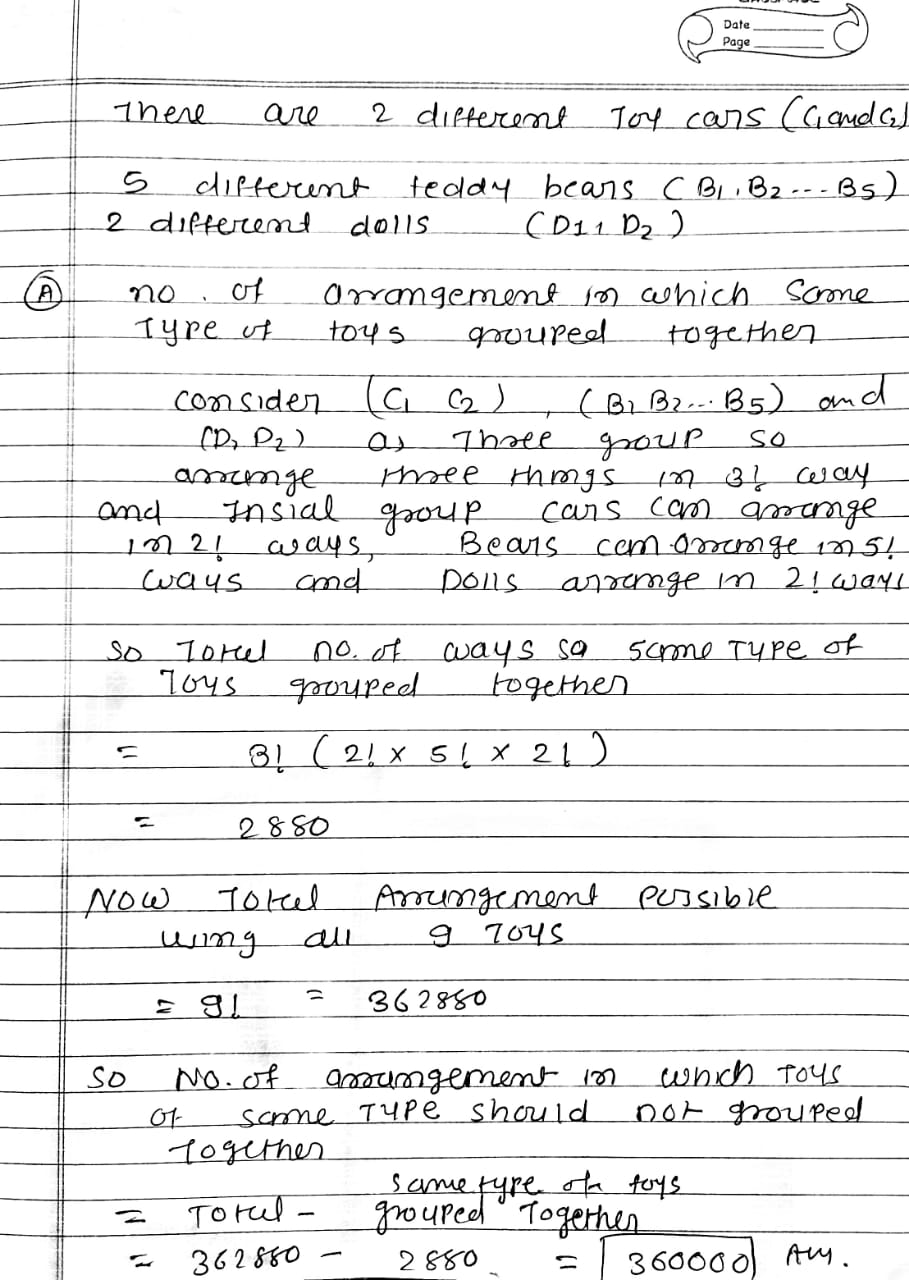 Date
Page
There are 2 different Toy cars (C1 and C2)
5 different teddy bears ( B1, B2 --- B5)
2 different dolls ( D1, D2 )
A no. of arrangement in which Same
Type of toys grouped together
consider (C1 C2) , ( B1 B2... B5) and
(D1 D2) as Three group so
arrange three things in 3! way
and Insial group cars can arrange
in 2! ways, Bears can arrange in 5!
ways and Dolls arrange in 2! ways
So Total no. of ways so same Type of
Toys grouped together
= 3! ( 2! x 5! x 2! )
= 2880
NOW Total Arrangement possible
using all 9 Toys
= 9! = 362880
SO NO. of arrangement in which Toys
of same TYPE should not grouped
Together
= Total - same type of toys grouped Together
= 362880 - 2880 = 360000 Ans.